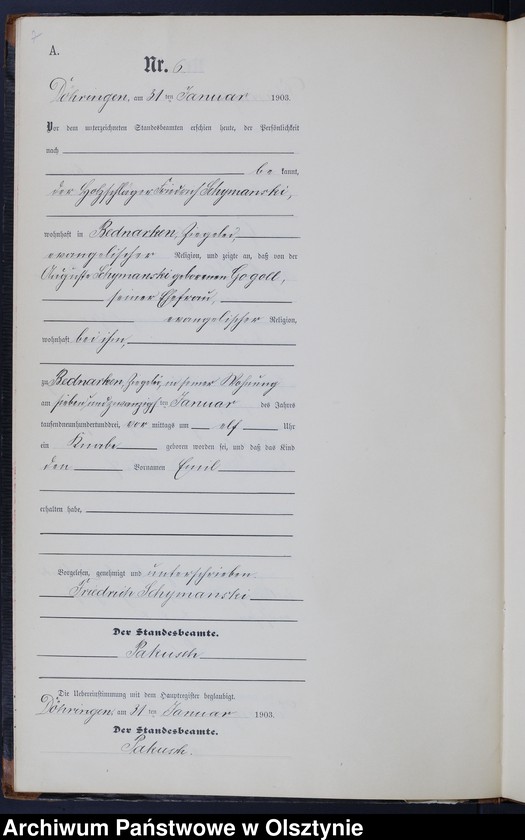 A.
Nr. 6
Döhringen, am 31 ten Januar 1903.
Vor dem unterzeichneten Standesbeamten erschien heute, der Persönlichkeit
nach
be kannt,
der Holzschläger Friedrich Schymanski,
wohnhaft in Bednarken, Ziegelei,
evangelischer Religion, und zeigte an, daß von der
Auguste Schymanski geborenen Gogoll,
seiner Ehefrau,
evangelischer Religion,
wohnhaft bei ihm,
zu Bednarken, Ziegelei, in seiner Wohnung
am siebenundzwanzigsten Januar des Jahrs
tausendneunhundertunddrei, vor mittags um elf Uhr
ein Knabe geboren worden sei, und daß das Kind
den Vornamen Emil
erhalten habe,
Vorgelesen, genehmigt und unterschrieben
Friedrich Schymanski
Der Standesbeamte.
Pakusch
Die Uebereinstimmung mit dem Hauptregister beglaubigt.
Döhringen, am 31 ten Januar 1903.
Der Standesbeamte.
Pakusch.
Archiwum Państwowe w Olsztynie